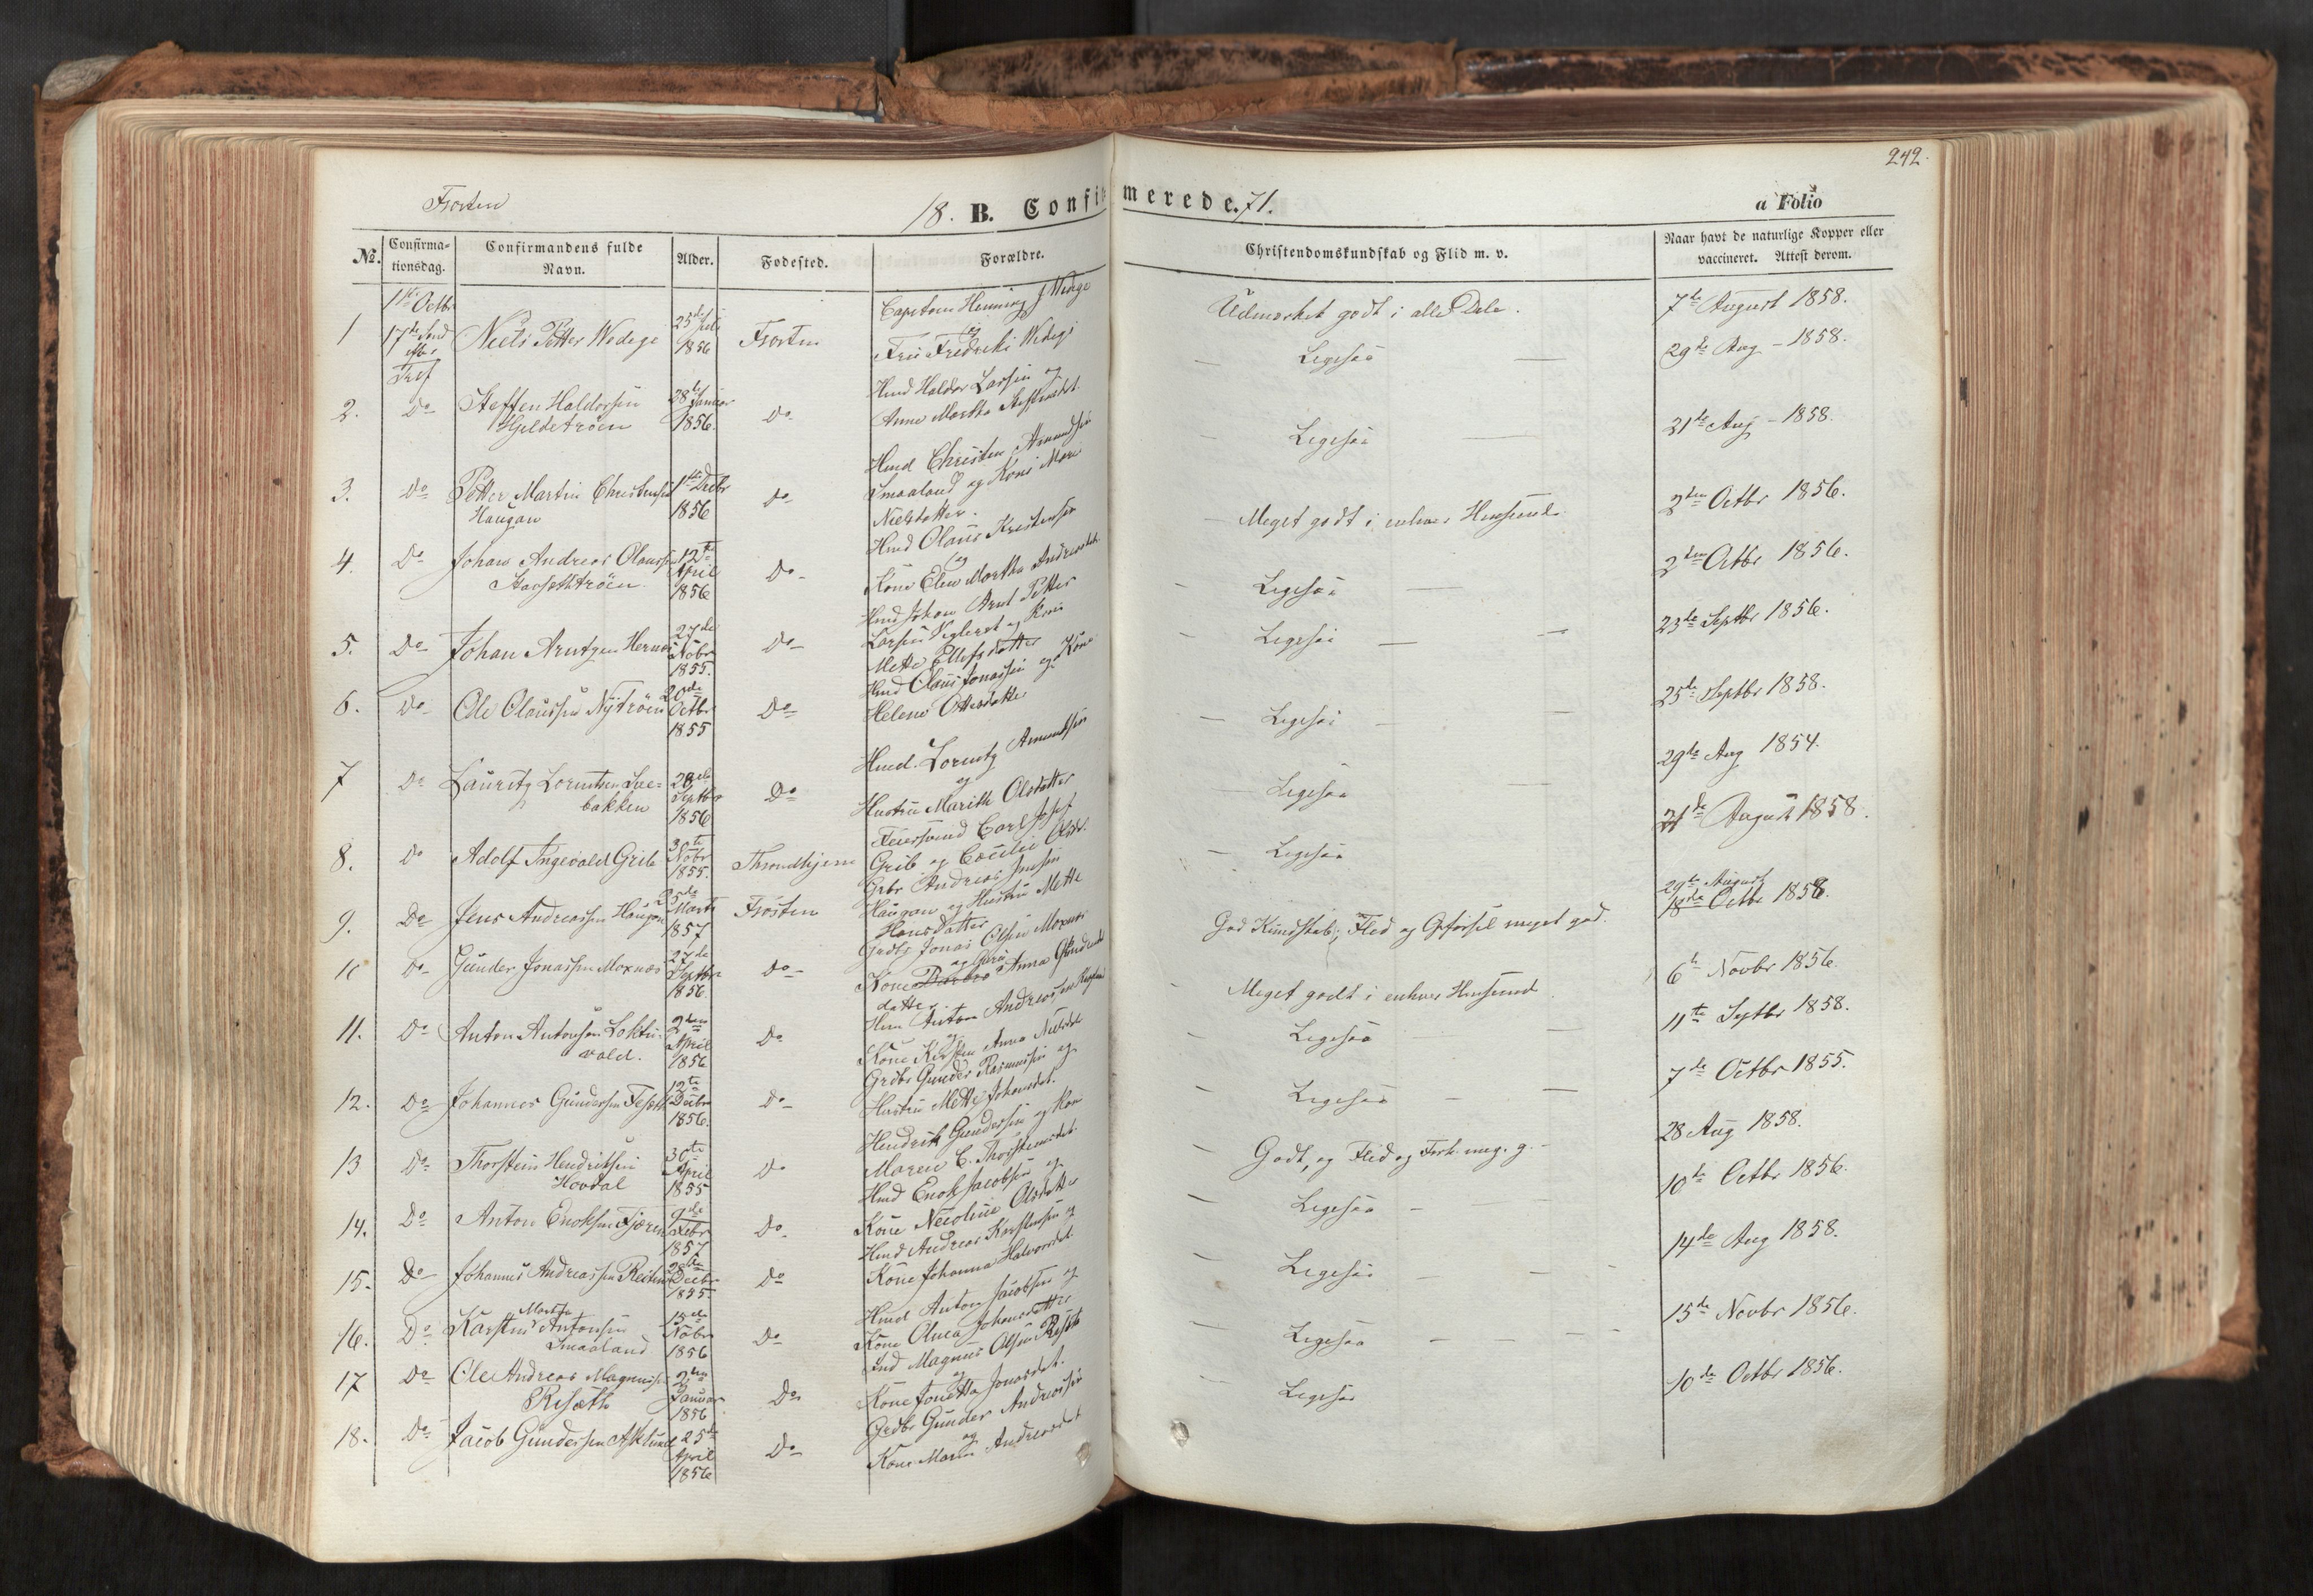 242.
Frosten
18. B. Confirmerede. 71.
a Folio
No. Confirmationsdag. Confirmandens fulde Navn. Alder. Fødested. Forældre. Christendomskundskab og Flid m. v. Naar havt de naturlige Kopper eller vaccineret. Attest derom.
1 1ste Octbr 17de Tref Niels Petter Wedege 25de Juli 1856 Frosten Capitain Henning J Wedege og Frue Fredrikke Wedege Udmærket godt i alle Dele. 7de August 1858.
2. Do Steffen Haldorsen Hjeldetrøen 28de Januar 1856. Do Hmd Haldor Larsen og Anne Martha Ligesaa 29de Aug – 1858.
3. Do Petter Martin Christensen Haugan 1ste Decbr 1856 Do Hmd Christen Amundsen Smaaland og Kone Mari Nielsdatter. Ligesaa 21de Aug – 1858.
4. Do Johan Andreas Olaussen 12te April 1856 Do Hmd Olaus Kristensen og Kone Elen Martha Andreasdt. Meget godt i enhver Henseende 2den Octbr 1856.
5. Do Johan Arntzen Hernes 27de Nobr 1855. Do Hmd Johan Arnt Petter Larsen og Kone Mette Ellefsdatter Ligesaa 2den Octbr 1856.
6. Do Ole Olaussen Nytrøen 20de Octbr 1855 Do Hmd Olaus Jonassen og Kone Helene Ottersdatter Ligesaa 23de Septbr 1856.
7 Do Lauritz Lorentsen bakken 28de Septbr 1856 Do Hmd. Lorentz Amundsen og Hustru Marith Olsdatter Ligesaa 25de Septbr 1858.
8. Do Adolf Ingevald Grib 30te Nobr 1855. Throndhjem Feiersvend Carl Josef Grib og Cecilie Olsdt. Ligesaa 29de Aug 1854.
9. Do Jens Andreassen Haugan 25de Marts 1857 Frosten Grbr Andreas Jensen Haugan og Hustru Mette Hansdatter Ligesaa 21de August 1858.
10 Do Gunder Jonassen Moxnæs 27de Septbr 1856 Do Grdbr Jonas Olsen Moxnæs og Kone Anna Gundersdatter God Kundskab, Flid og Opførsel meget god. 29de August 18de Octbr 1858.
11. Do Anton Antonsen vald. 2den April 1856 Do Hm Anton Andreassen og Kone Kirsten Anna Nielsdt Meget godt i enhver Henseende 6te Novbr 1856.
12. Do Johannes Gundersen 12te Decbr 1856. Do Grdbr Gunder Rasmussen og Hustru Mette Johansdt. Ligesaa 11te Septbr 1858.
13 Do Thorstein Hendriksen Hovdal 30te April 1855 Do Hendrik Gundersen og Kone Maren C. Thorstensdt. Ligesaa 7de Octbr 1855.
14. Do Anton Enoksen 9de Febr 1857 Do Hmd Enok Jacobsen og Kone Nicoline Olsdatter Godt, og Flid og Forh. meg. g. 28 Aug 1858.
15. Do Johannes Andreassen 28de Decbr 1855 Do Hmd Andreas Karstensen og Kone Johanna Halvorsdt. Ligesaa 10de Octbr 1856.
16. Do Karsten Martin Antonsen Smaaland 15de Nobr 1856 Do Hmd Anton Jacobsen og Kone Olnea Johansdatter Ligesaa 14de Aug 1858.
17 Do Ole Andreas Magnussen Risæth 2den Januar 1856 Do Magnus Olsen Risæth og Kone Jonetta Jonasdt. Ligesaa 15de Novbr 1856.
18. Do Jacob Gundersen Aklund 25de April 1856 Do Grdbr Gunder Andreassen og Kone Maren Andreasdt Ligesaa 10de Octbr 1856.